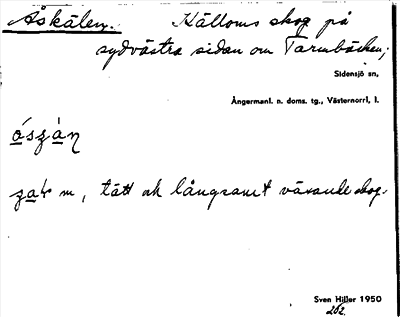 Åskälen. Källoms skog på
sydvästra sidan om Tarmbäcken;
Sidensjö sn,
Ångermanl. n. doms. tg., Västernorrl, l.
m, tätt och långsamt växande skog.
Sven Hiller 1950
262.